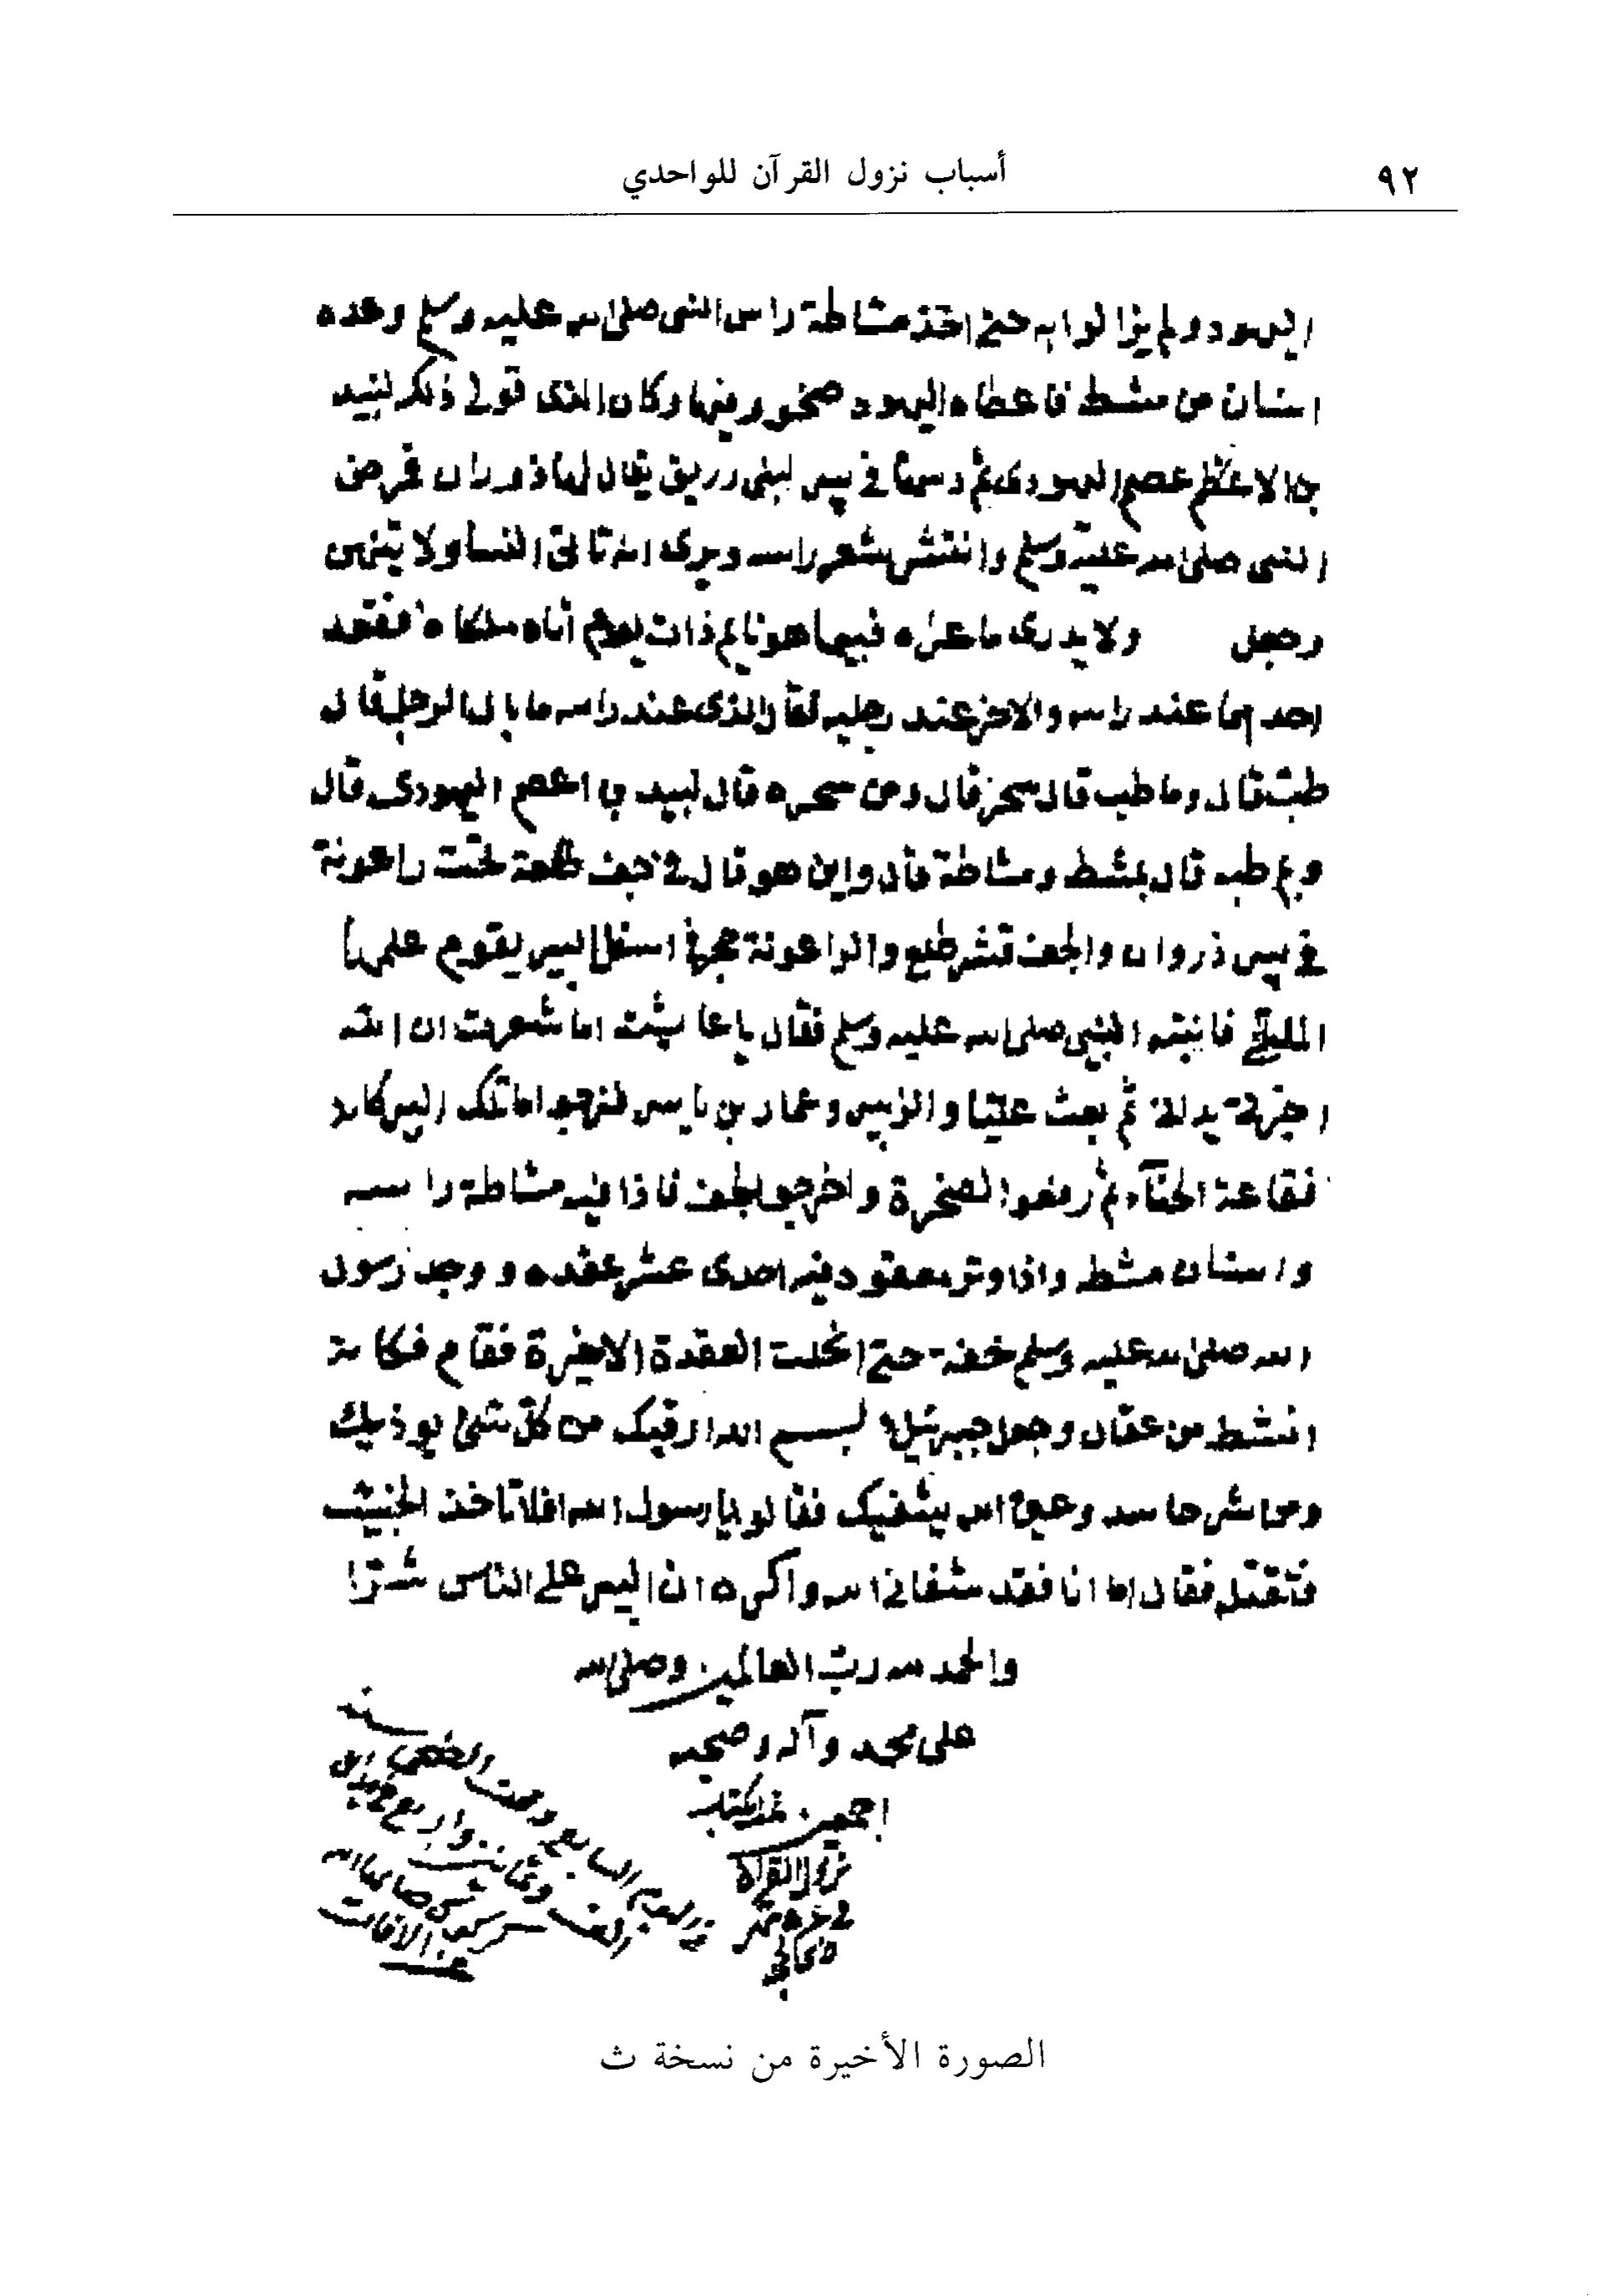 ٩٢
أسباب نزول القرآن للواحدي
اليهود ولم يزالوا به حتى اخذ مشاطة راس النبى صلى الله عليه وسلم وعدة
اسنان من مشطه فاعطاها اليهود فسحروه فيها وكان الذى تولى ذلك لبيد
بن الاعصم اليهودى ثم دسها في بير لبنى زريق يقال لها ذوروان فمرض
النبى صلى الله عليه وسلم وانتثر شعر راسه ويرى انه ياتى النساء ولا ياتيهن
وجعل ولا يدرى ما عراه فبينما هو نايم ذات يوم أتاه ملكان فقعد
احدهما عند راسه والاخر عند رجليه فقال الذى عند راسه ما بال الرجل قال
طب قال وما طب قال سحر قال ومن سحره قال لبيد بن اعصم اليهودى قال
وبم طبه قال بمشط ومشاطة قال واين هو قال في جف طلعة تحت راعوفة
في بير ذروان والجف قشر طلع والراعوفة حجر في اسفل البير يقوم عليها
المايح فانتبه النبي صلى الله عليه وسلم فقال يا عايشة اما شعرت ان الله
اخبرنى بدائى ثم بعث عليا والزبير وعمار بن ياسر فنزحوا ماء تلك البير كانه
نقاعة الحنآء ثم رفعوا الصخرة واخرجوا الجف فاذا فيه مشاطة راسه
واسنان مشطه واذا وتر معقود فيه احدى عشر عقده ووجد رسول
الله صلى الله عليه وسلم خفة حتى انحلت العقدة الاخيرة فقام فكانما
انشط من عقال وجعل جبرئيل بسم الله ارقيك من كل شئ يوذيك
ومن شر حاسد وعين الله يشفيك فقالوا يا رسول الله افلا تاخذ الخبيث
فتقتله فقال اما انا فقد شفاني الله واكره ان اثير على الناس شرا
والحمد لله رب العالمين وصلى الله
على محمد وآله وصحبه
اجمعين
نزول القرآن
الصورة الأخيرة من نسخة ث